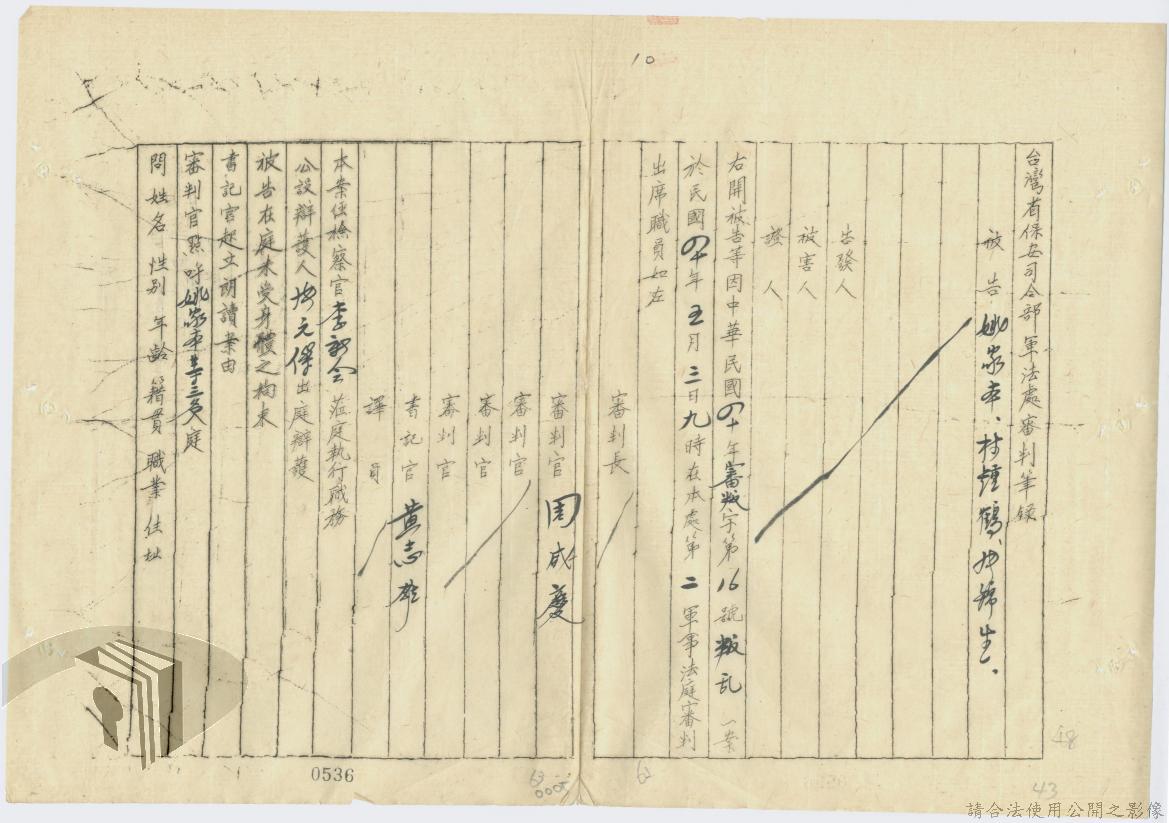 10
台灣省保安司令部軍法處審判筆錄
被告 姚家本、杜鍾鶴、
告發人
被害人
證人
右開被告等因中華民國四十年審字第16號叛乱一案
於民國四十年五月三日九時在本處第二軍事法庭審判
出席職員如左
審判長
審判官 周咸慶
審判官
審判官
審判官
書記官 黃志
譯員
本案任檢察官李 蒞庭執行職務
公設辯護人 元 出庭辯護
被告在庭未受身體之拘束
書記官起立朗讀案由
審判官點呼姚家本等三名入庭
問姓名 性別 年齡 籍貫 職業 住址
0536
48
43
請合法使用公開之影像